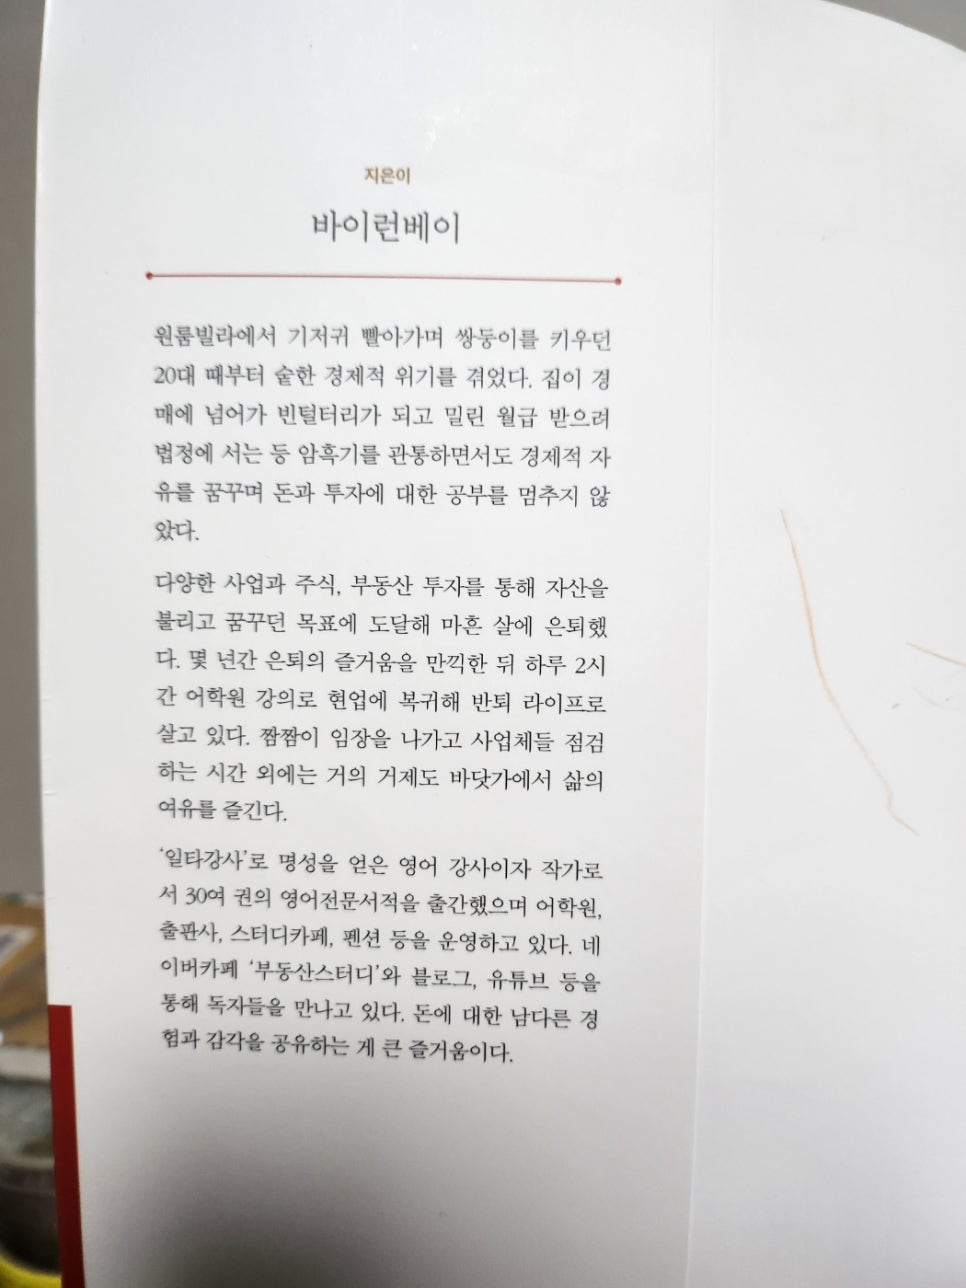 지은이
바이런베이
원룸빌라에서 기저귀 빨아가며 쌍둥이를 키우던
20대 때부터 숱한 경제적 위기를 겪었다. 집이 경
매에 넘어가 빈털터리가 되고 밀린 월급 받으려
법정에 서는 등 암흑기를 관통하면서도 경제적 자
유를 꿈꾸며 돈과 투자에 대한 공부를 멈추지 않
았다.
다양한 사업과 주식, 부동산 투자를 통해 자산을
불리고 꿈꾸던 목표에 도달해 마흔 살에 은퇴했
다. 몇 년간 은퇴의 즐거움을 만끽한 뒤 하루 2시
간 어학원 강의로 현업에 복귀해 반퇴 라이프로
살고 있다. 짬짬이 임장을 나가고 사업체들 점검
하는 시간 외에는 거의 거제도 바닷가에서 삶의
여유를 즐긴다.
‘일타강사’로 명성을 얻은 영어 강사이자 작가로
서 30여 권의 영어전문서적을 출간했으며 어학원,
출판사, 스터디카페, 펜션 등을 운영하고 있다. 네
이버카페 ‘부동산스터디’와 블로그, 유튜브 등을
통해 독자들을 만나고 있다. 돈에 대한 남다른 경
험과 감각을 공유하는 게 큰 즐거움이다.